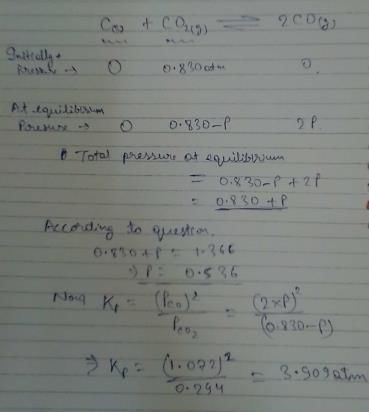 C(s) + CO2(g) ⇌ 2CO(g)
Initially →
Pressure → 0 0.830atm 0.
At equilibrium
Pressure → 0 0.830-P 2P.
Total pressure at equilibrium
= 0.830-P + 2P
= 0.830 + P
According to question.
0.830+P = 1.366
⇒ P = 0.536
Now Kp = (PCO)² / PCO2 = (2×P)² / (0.830-P)
⇒ Kp = (1.072)² / 0.294 = 3.909atm